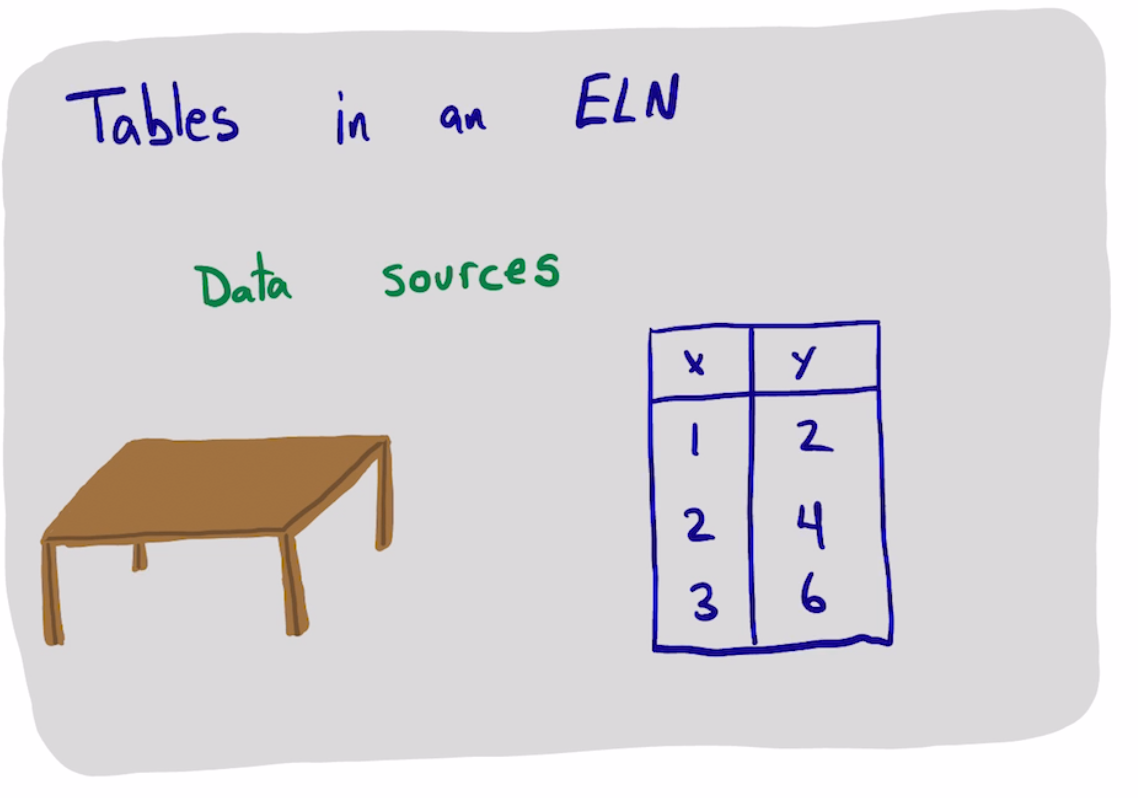 Tables in an ELN
Data sources
x y
1 2
2 4
3 6